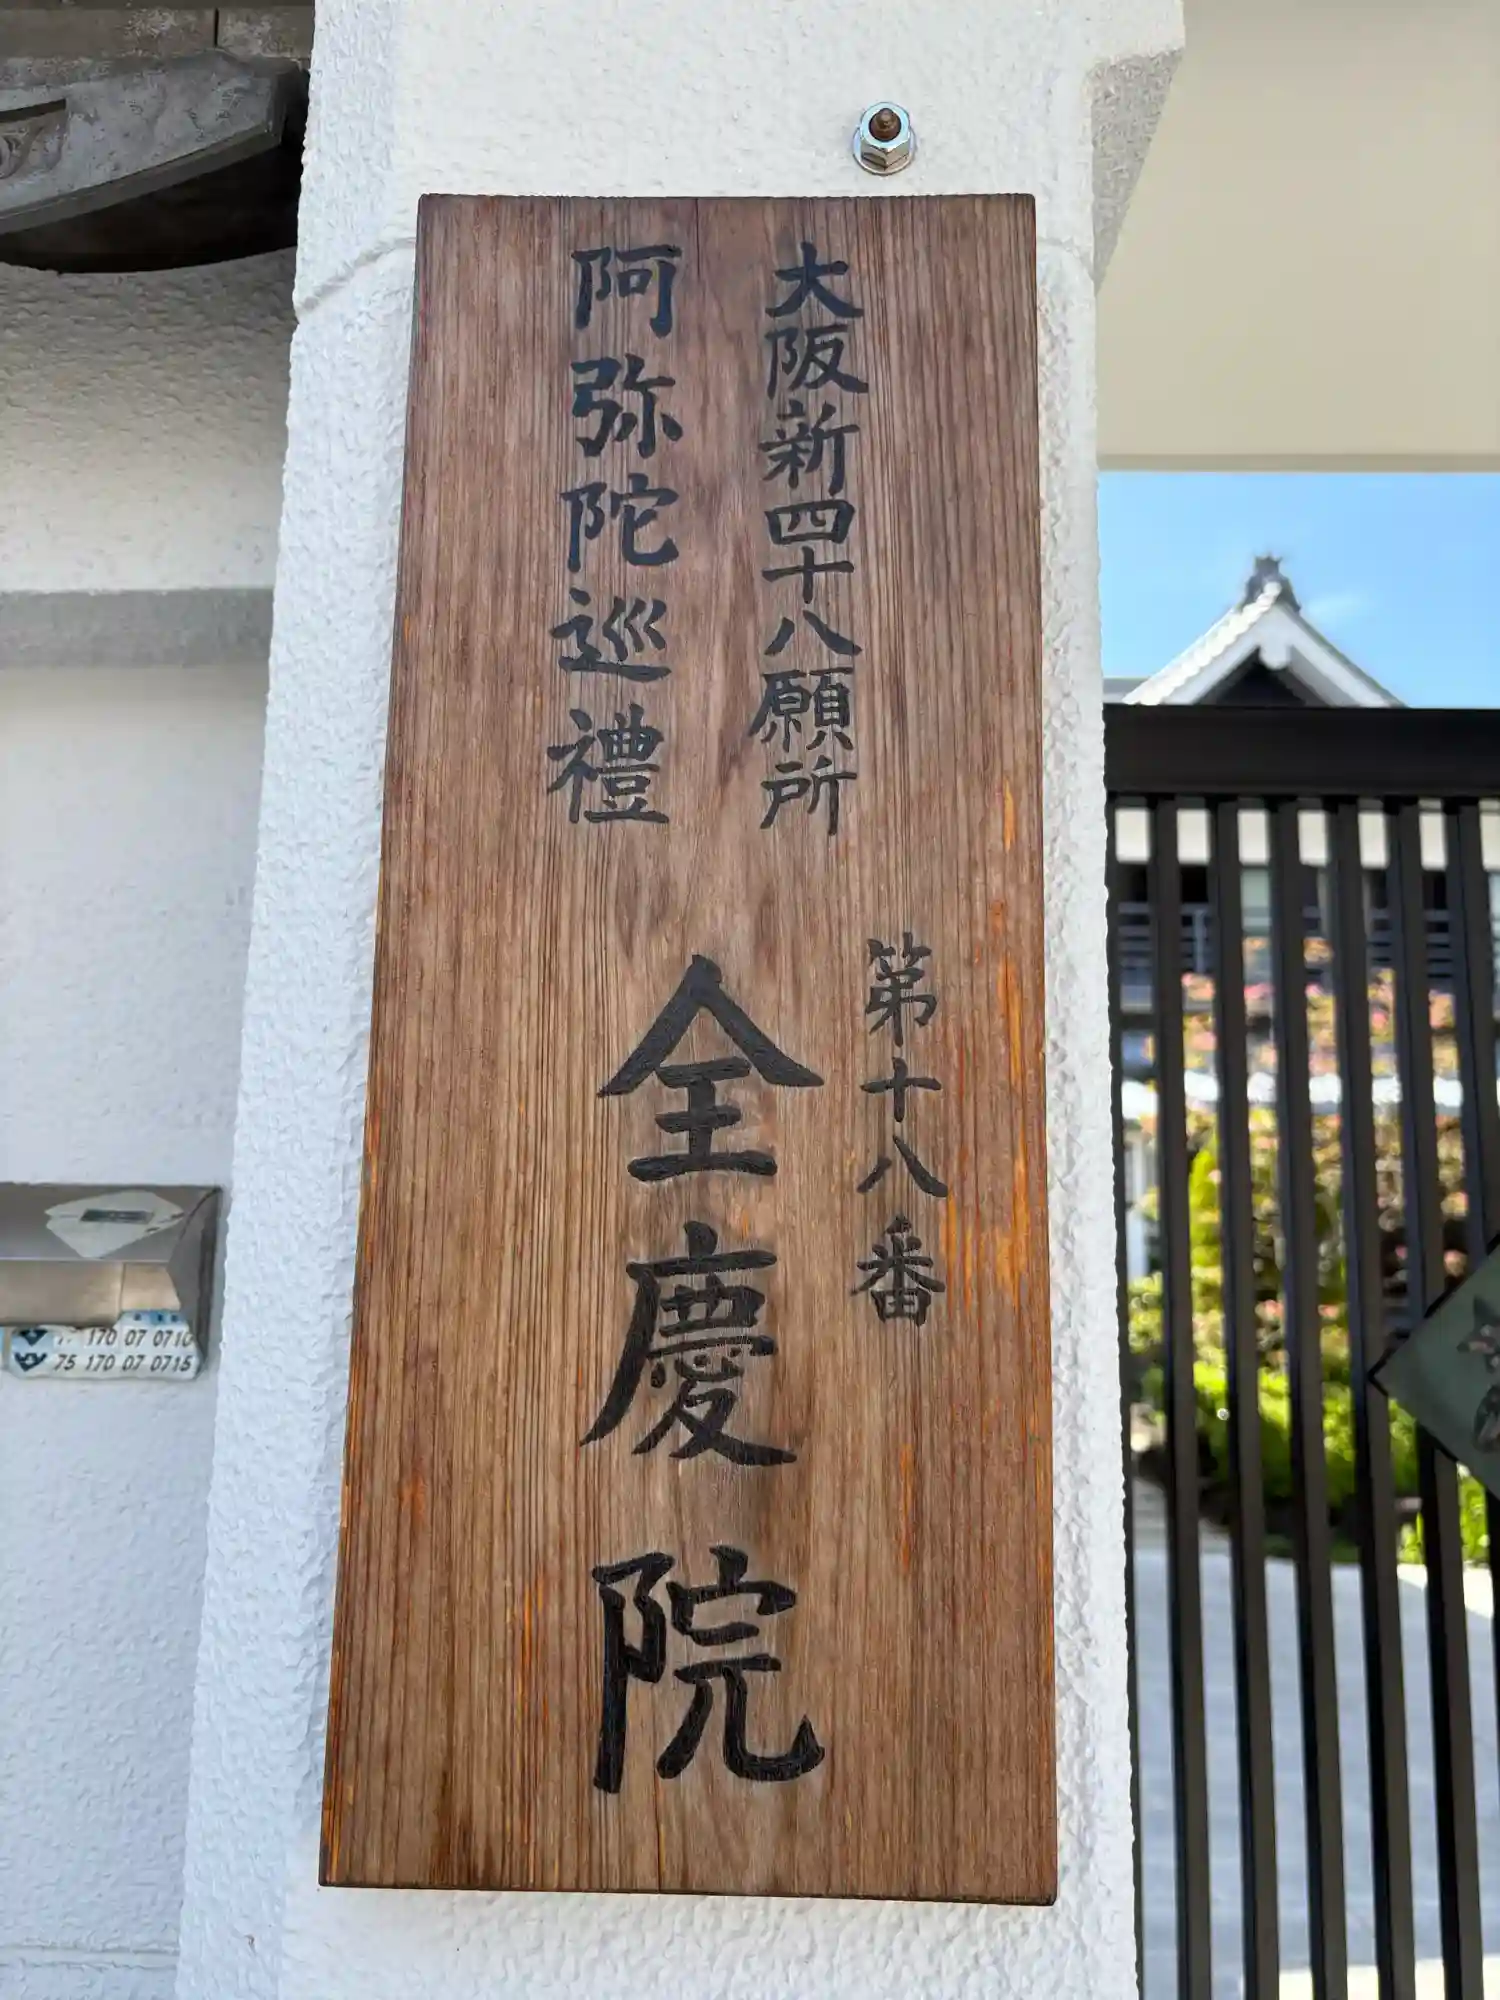 大阪新四十八願所
阿弥陀巡禮
第十八番
全慶院
170 07 0710
75 170 07 0715